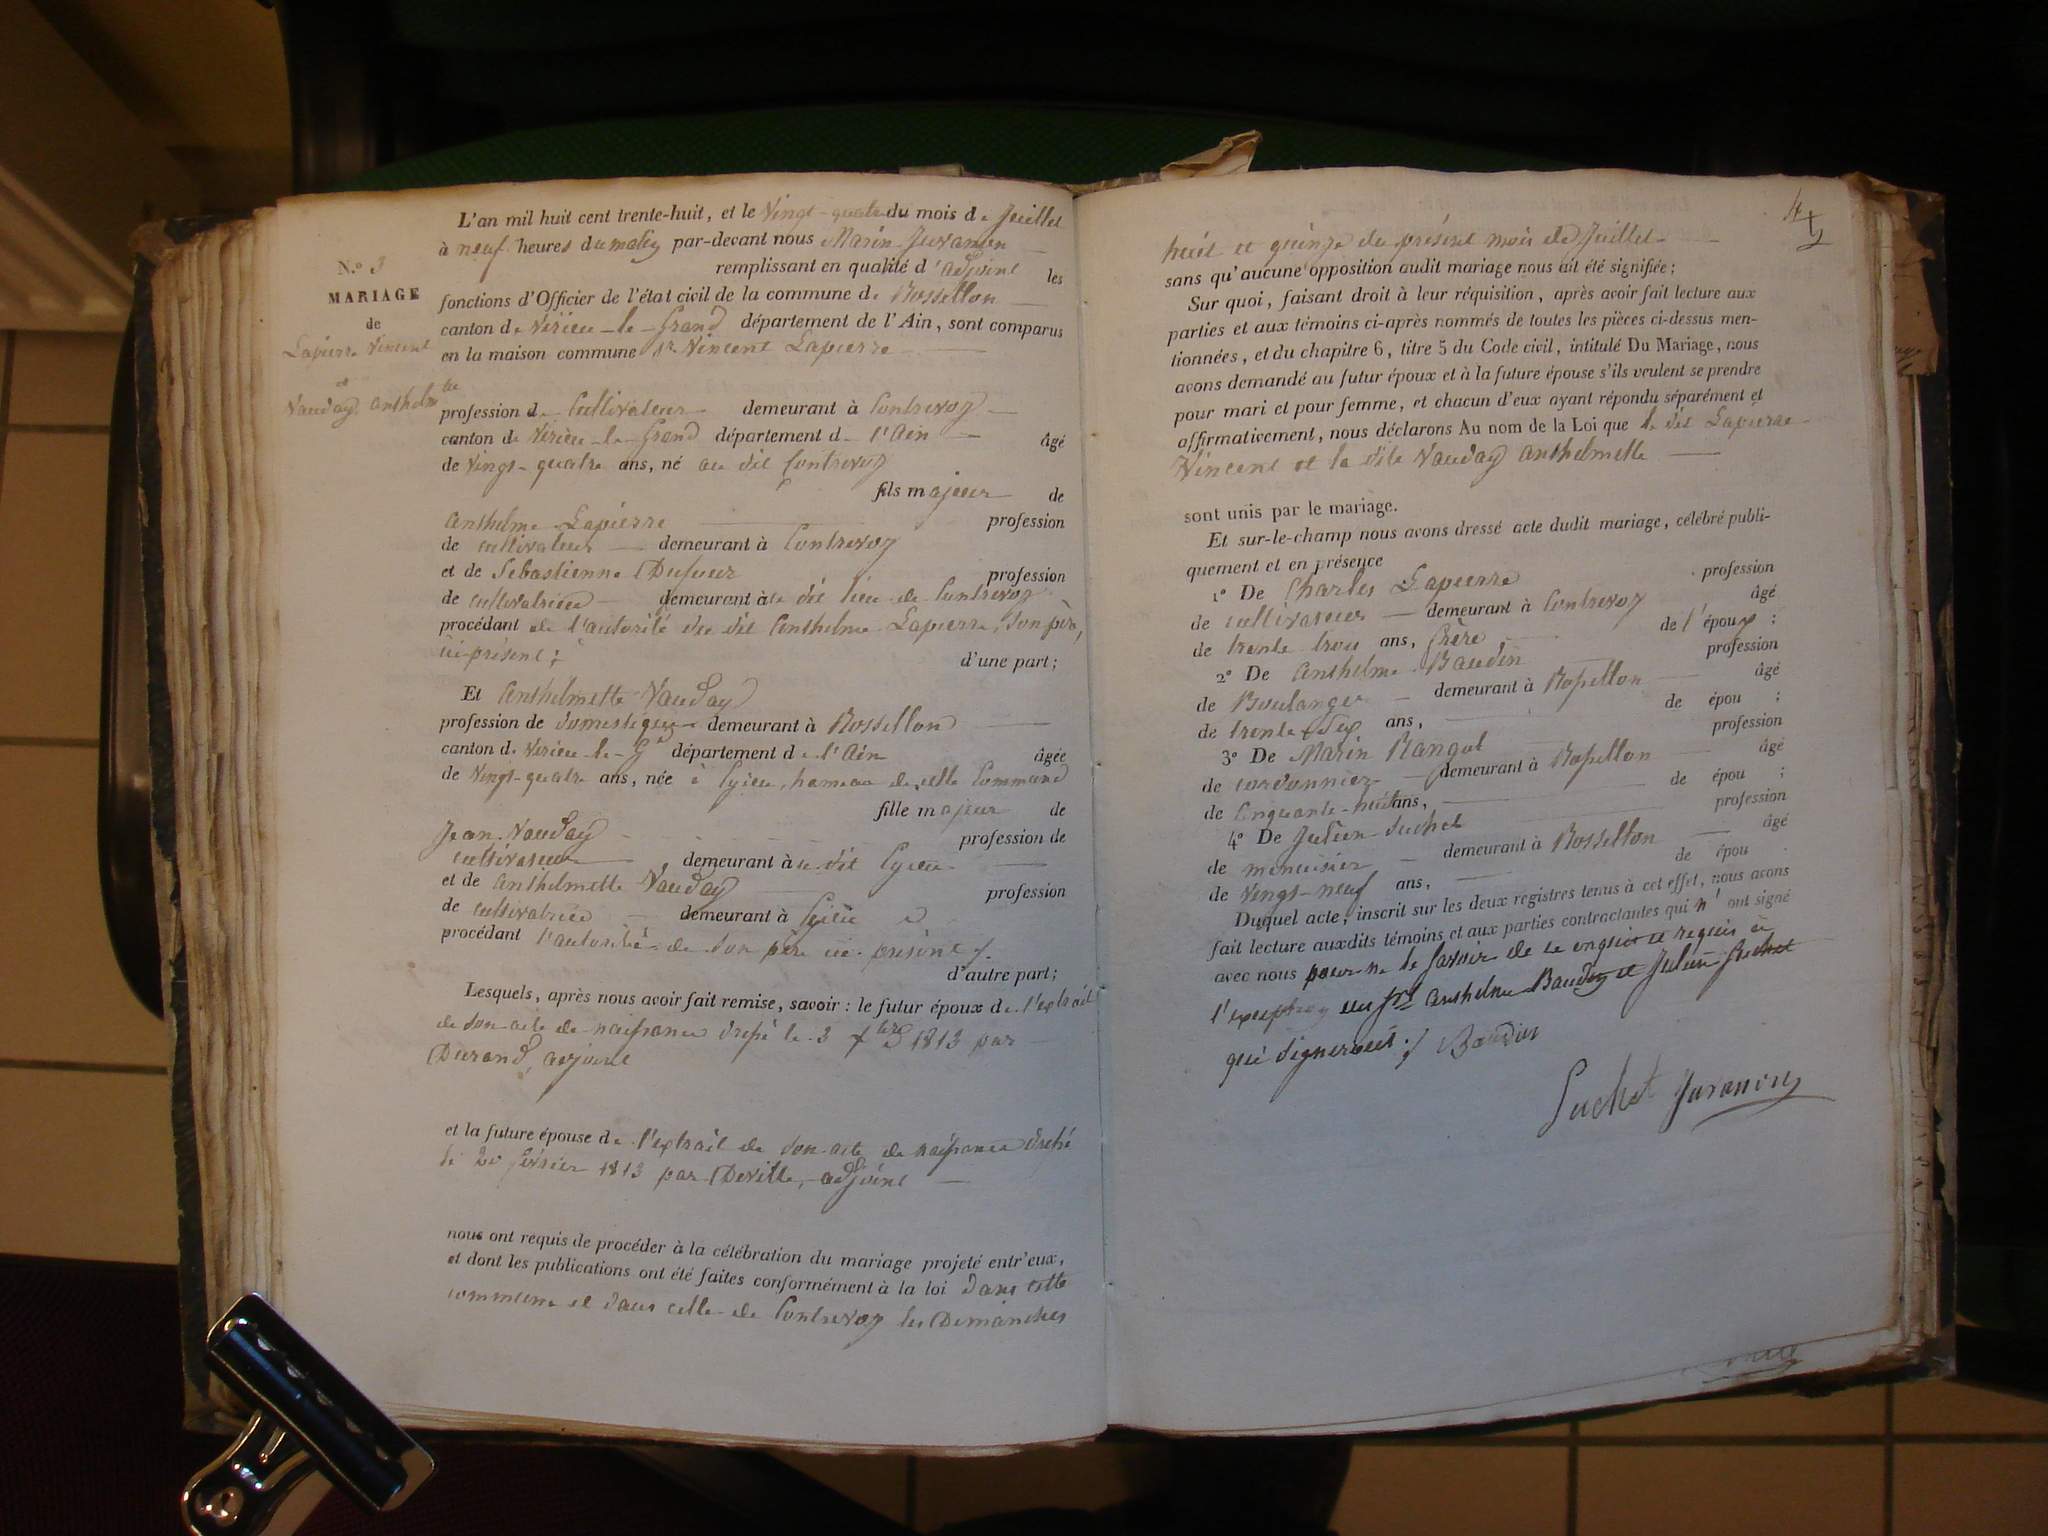 N.º 3
MARIAGE
de
Lapierre Vincent
et
Vauday Anthelmtte
L'an mil huit cent trente-huit, et le Vingt-quatre du mois de Juillet
à neuf heures du matin par-devant nous Marin Juvanon
remplissant en qualité d'adjoint les
fonctions d'Officier de l'état civil de la commune de Rossillon
canton de Virieu-le-Grand département de l'Ain, sont comparus
en la maison commune Sr. Vincent Lapierre
profession de Cultivateur demeurant à Contrevoz
canton de Virieu-le-Grand département de l'Ain âgé
de Vingt-quatre ans, né au dit Contrevoz
fils majeur de
Anthelme Lapierre profession
de cultivateur demeurant à Contrevoz
et de Sébastienne Dufour profession
de cultivatrice demeurant à dit lieu de Contrevoz
procédant de l'autorité du dit Anthelme Lapierre, son père,
ici présent; d'une part;
Et Anthelmette Vauday
profession de domestique demeurant à Rossillon
canton de Virieu-le-Gd département de l'Ain âgée
de Vingt-quatre ans, née à Cyieu, hameau de cette Commune
fille majeur de
Jean Vauday profession de
cultivateur demeurant à dit Cyieu
et de Anthelmette Vauday profession
de cultivatrice demeurant à Cyieu
procédant l'autorité de son père ici présent
d'autre part;
Lesquels, après nous avoir fait remise, savoir: le futur époux de l'extrait
de son acte de naissance dressé le 3 1813 par
Durand, adjoint
et la future épouse de l'extrait de son acte de naissance dressé
le 20 février 1813 par Deville, adjoint
nous ont requis de procéder à la célébration du mariage projeté entr'eux,
et dont les publications ont été faites conformément à la loi dans cette
commune et dans celle de Contrevoz les Dimanches
huit et quinze du présent mois de Juillet
sans qu'aucune opposition audit mariage nous ait été signifiée;
Sur quoi, faisant droit à leur réquisition, après avoir fait lecture aux
parties et aux témoins ci-après nommés de toutes les pièces ci-dessus men-
tionnées, et du chapitre 6, titre 5 du Code civil, intitulé Du Mariage, nous
avons demandé au futur époux et à la future épouse s'ils veulent se prendre
pour mari et pour femme, et chacun d'eux ayant répondu séparément et
affirmativement, nous déclarons Au nom de la Loi que le dit Lapierre
Vincent et la dite Vauday Anthelmette
sont unis par le mariage.
Et sur-le-champ nous avons dressé acte dudit mariage, célébré publi-
quement et en présence
1º De Charles Lapierre profession
de cultivateur demeurant à Contrevoz âgé
de trente trois ans, frère de l'époux;
2º De Anthelme Baudin profession
de Boulanger demeurant à Rossillon âgé
de trente ans, de épou;
3º De Marin Rangot profession
de cordonnier demeurant à Rossillon âgé
de Cinquante-huit ans, de épou;
4º De Julien Suchet profession
de menuisier demeurant à Rossillon âgé
de Vingt-neuf ans, de épou
Duquel acte, inscrit sur les deux registres tenus à cet effet, nous avons
fait lecture auxdits témoins et aux parties contractantes qui n'ont signé
avec nous pour ne le savoir de ce enquis et requis à
l'exception Anthelme Baudin et Julien Suchet
qui signeront. Baudin
Suchet Juvanon